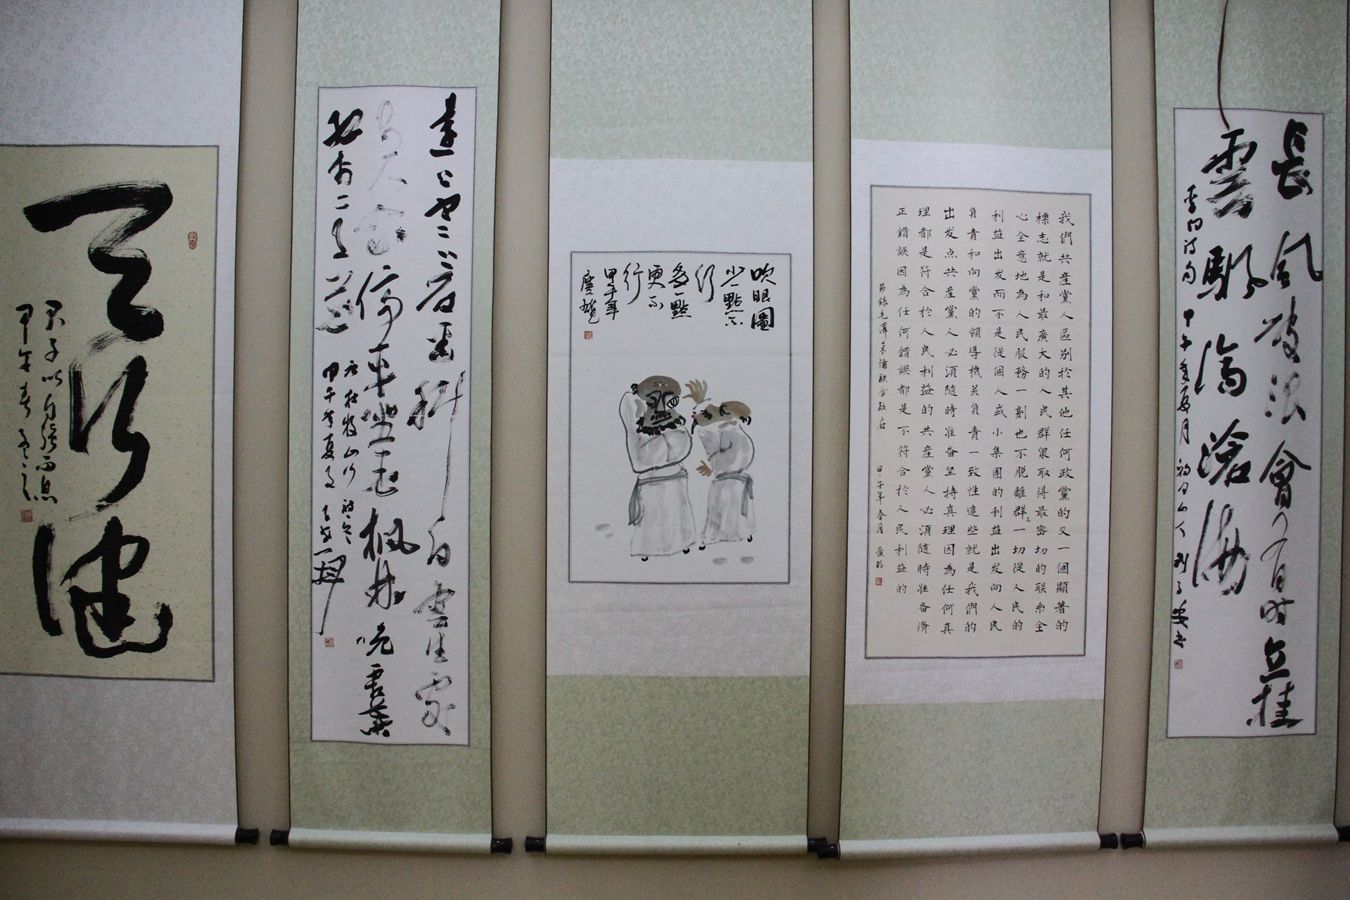 天行健
君子以自強不息
甲午年春
遠上寒山石徑斜白雲生處
有人家停車坐愛楓林晚霜葉
紅於二月花
唐杜牧山行
甲午年夏月
吹眼圖
少一點不
行
多一點
更不
行
甲午年
我們共産黨人区別於其他任何政黨的又一個顯著的
標志就是和最廣大的人民群衆取得最密切的联系全
心全意地為人民服務一刻也不脱離群一切從人民的
利益出发而不是從個人或小集團的利益出发向人民
負責和向黨的領導機关負責一致性這些就是我們的
出发点共産黨人必須隨時准备坚持真理因為任何真
理都是符合於人民利益的共産黨人必須隨時准备脩
正錯誤因為任何錯誤都是不符合於人民利益的
節錄毛澤東論联合政府 甲午年春月
長風破浪會有時直挂
雲颿濟滄海
李白詩句 甲午年夏月